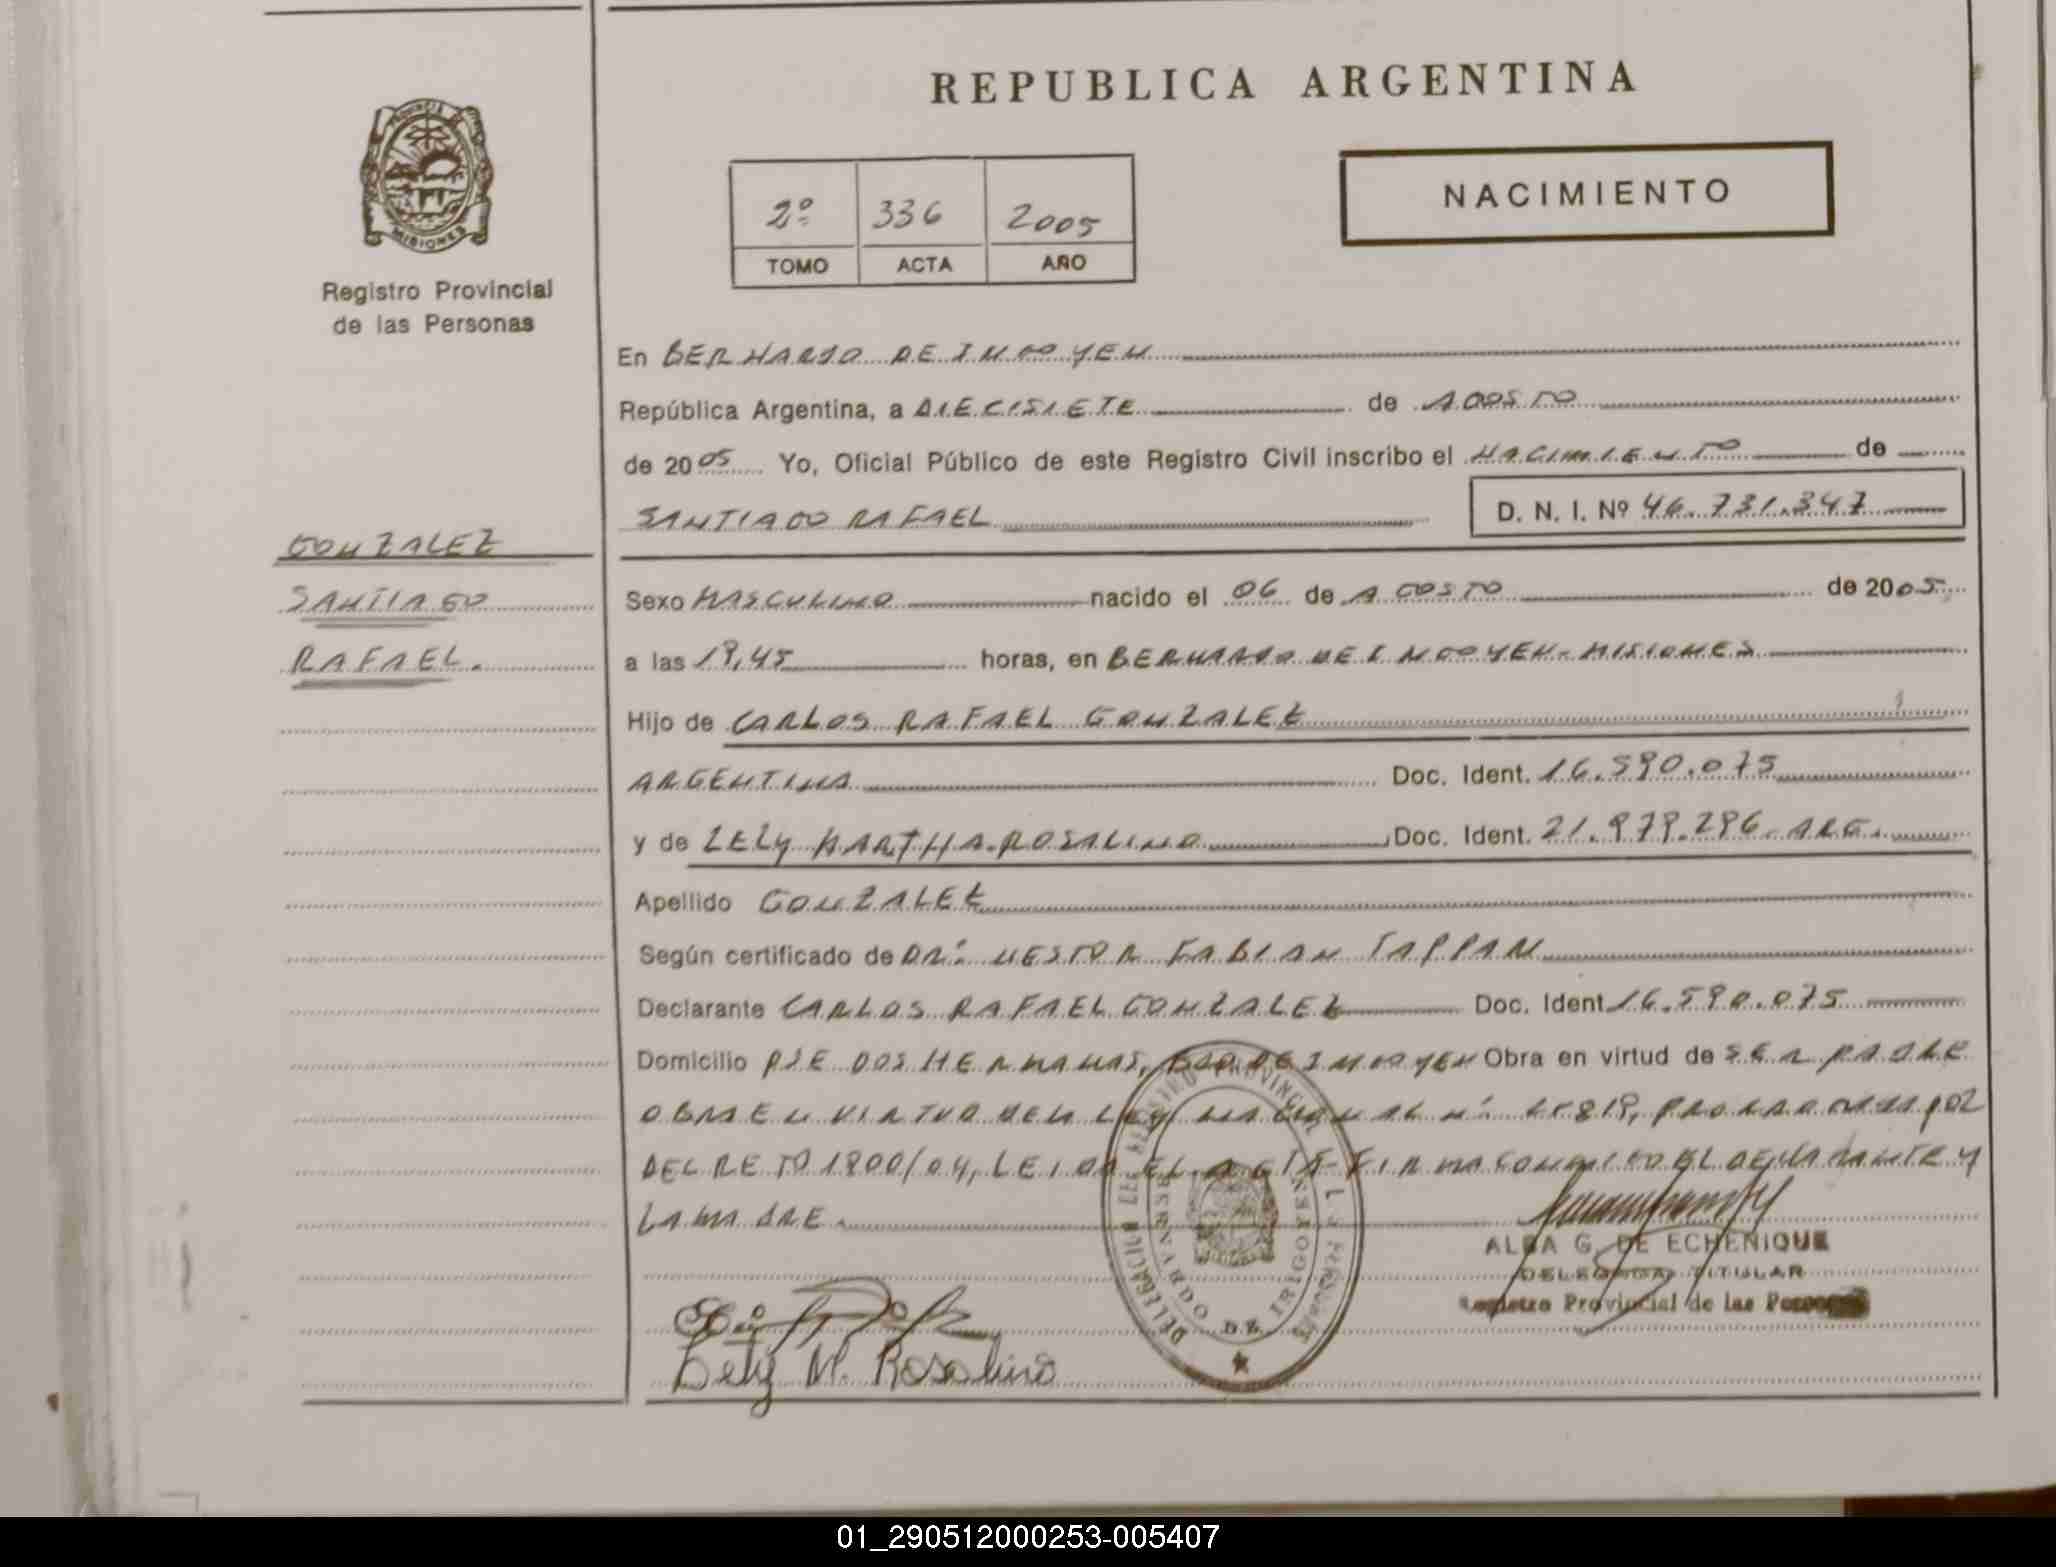 REPUBLICA ARGENTINA
PROVINCIA
MISIONES
Registro Provincial
de las Personas
2º 336 2005
TOMO ACTA AÑO
NACIMIENTO
En BERNARDO DE IRIGOYEN
República Argentina, a DIECISIETE de AGOSTO
de 2005 Yo, Oficial Público de este Registro Civil inscribo el NACIMIENTO de
SANTIAGO RAFAEL D. N. I. Nº 46.731.347
GONZALEZ
SANTIAGO
RAFAEL.
Sexo MASCULINO nacido el 06 de AGOSTO de 2005
a las 19,45 horas, en BERNARDO DE IRIGOYEN-MISIONES
Hijo de CARLOS RAFAEL GONZALEZ
ARGENTINA Doc. Ident. 16.590.075
y de LELY MARTHA ROSALINO Doc. Ident. 21.979.296. ARG.
Apellido GONZALEZ
Según certificado de DR. NESTOR FABIAN TAPPARI
Declarante CARLOS RAFAEL GONZALEZ Doc. Ident 16.590.075
Domicilio PJE DOS HERMANAS, BDO DE IRIGOYEN Obra en virtud de SER PADRE
OBRA EN VIRTUD DE LA LEY NACIONAL Nº 25819, POR
DECRETO 1900/04, LEIDA EL ACTA FIRMA CONMIGO EL DECLARANTE Y
LA MADRE
DELEGACION REGISTRO PROVINCIAL DE LAS PERSONAS
BERNARDO DE IRIGOYEN
ALBA G. DE ECHENIQUE
DELEGADA TITULAR
Registro Provincial de las Personas
Lely M. Rosalino
01_290512000253-005407